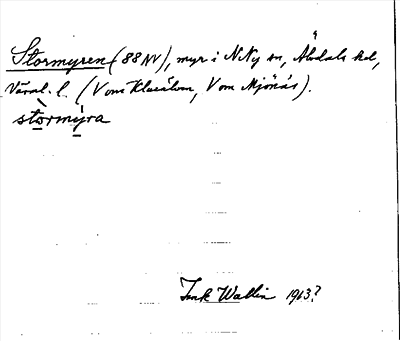 Stormyren (88 NV), myr i N Ny sn, Älvdals hd,
Värml. l. (Vom Klarälven, Vom Mjönäs).
stòrmýra
Wallin 1913?